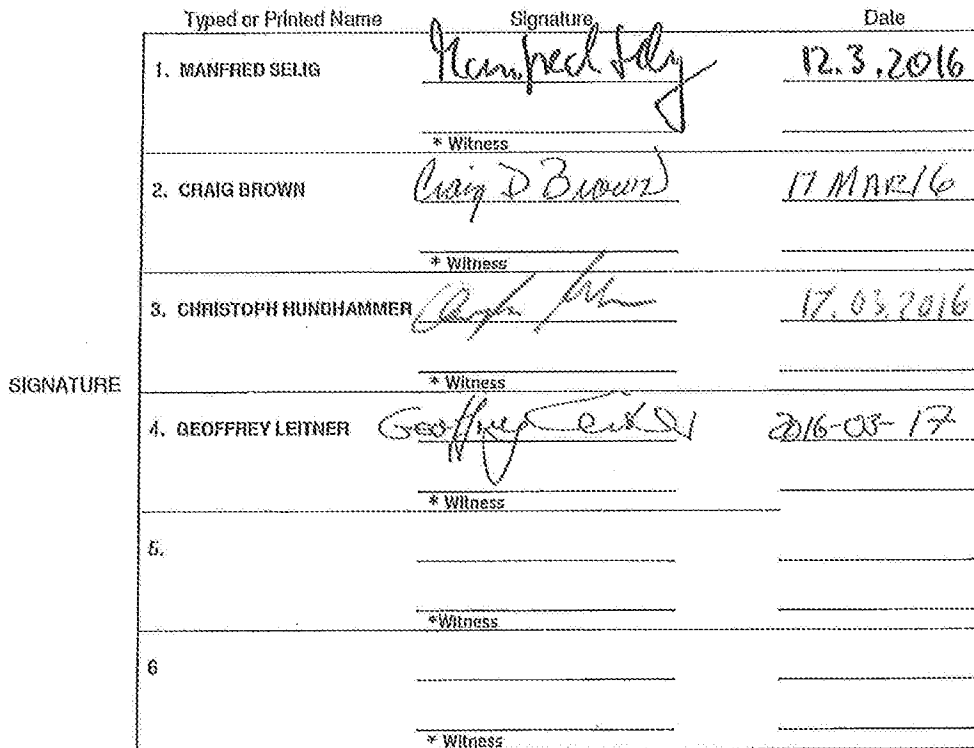 Typed or Printed Name Signature Date
1. MANFRED SELIG Manfred Selig 12.3.2016
* Witness
2. CRAIG BROWN Craig D Brown 17 MAR 16
* Witness
3. CHRISTOPH HUNDHAMMER 17.03.2016
* Witness
SIGNATURE
4. GEOFFREY LEITNER Geoffrey Leitner 2016-03-17
* Witness
5.
*Witness
6
* Witness